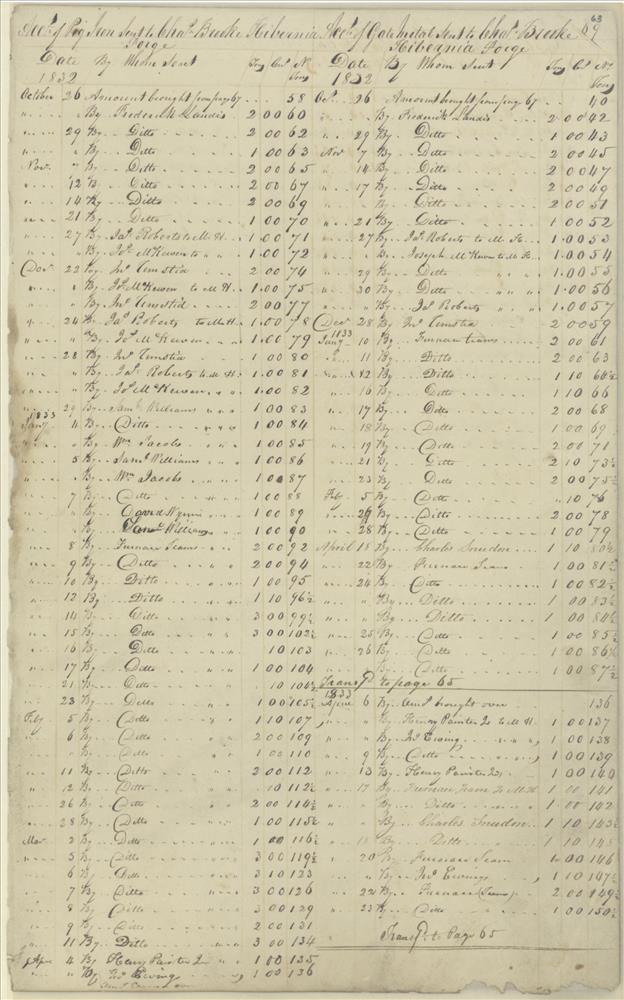 63
69
Acct. of Pig Iron Sent to Chas. Brooke Hibernia Forge
Date By Whom Sent Tons Cwt No Tons
1832
October 26 Amount brought from page 67 58
" " By Frederick Landis 2 00 60
" 29 By Ditto 2 00 62
" " By Ditto 1 00 63
Nov. 7 By Ditto 2 00 65
" 12 By Ditto 2 00 67
" 14 By Ditto 2 00 69
" 21 By Ditto 1 00 70
" 27 By Jas. Roberts to M. H. 1 00 71
" " By Jos. McKewen " " 1 00 72
Dec. 22 By Jno. Umstid 2 00 74
" " By Jos. McKewen to M. H. 1 00 75
" " By Jno. Umstid 2 00 77
" 24 By Jas. Roberts to M. H. 1 00 78
" " By Jos. McKewen " 1 00 79
" 28 By Jno. Umstid 1 00 80
" " By Jas. Roberts to M. H. 1 00 81
" " By Jos. McKewen " " 1 00 82
" 29 By Saml. Williams " " 1 00 83
1833
Jany 4 By Ditto " " 1 00 84
" " By Wm. Jacobs " " 1 00 85
" 5 By Saml. Williams " " 1 00 86
" " By Wm. Jacobs " " 1 00 87
" 7 By Ditto " 1 00 88
" " By David Wynn " " 1 00 89
" " By Saml. Williams " " 1 00 90
" 8 By Furnace Teams 2 00 92
" 9 By Ditto 2 00 94
" 10 By Ditto 1 00 95
" 12 By Ditto 1 10 96½
" 14 By Ditto 3 00 99½
" 15 By Ditto 3 00 102½
" 16 By Ditto 10 103
" 17 By Ditto 1 00 104
" 21 By Ditto 10 104½
" 23 By Ditto 1 00 105½
Feby 5 By Ditto 1 10 107
" 6 By Ditto 2 00 109
" " By Ditto 1 00 110
" 11 By Ditto 2 00 112
" 12 By Ditto 10 112½
" 26 By Ditto 2 00 114½
" 28 By Ditto 1 00 115½
Mar 2 By Ditto 1 00 116½
" 5 By Ditto 3 00 119½
6 By Ditto 3 10 123
" 7 By Ditto 3 00 126
" 8 By Ditto 3 00 129
" 9 By Ditto 2 00 131
" 11 By Ditto 3 00 134
Apr 4 By Henry Painter Jr 1 00 135
" " By Jno. Ewing " 1 00 136
Amt Carried over
Acct. of Gate Metal Sent to Chas. Brooke
Hibernia Forge
Date By Whom Sent Tons Cwt No Tons
1832
Oct. 26 Amount brought from page 67 40
" " By Frederick Landis 2 00 42
" 29 By Ditto 1 00 43
Nov 7 By Ditto 2 00 45
" 14 By Ditto 2 00 47
" 17 By Ditto 2 00 49
" " By Ditto 2 00 51
" 21 By Ditto 1 00 52
" 27 By Jas. Roberts to M. H. 1 00 53
" " By Joseph McKewen to M. H. 1 00 54
" 29 By Ditto " 1 00 55
" 30 By Ditto " 1 00 56
" " By Jas. Roberts " " 1 00 57
Dec. 28 By Jno. Umstid 2 00 59
1833
Jany 10 By Furnace teams 2 00 61
" 11 By Ditto 2 00 63
" 12 By Ditto 1 10 64½
" 16 By Ditto 1 10 66
" 17 By Ditto 2 00 68
" 18 By Ditto 1 00 69
" 19 By Ditto 2 00 71
" 21 By Ditto 2 10 73½
" 23 By Ditto 2 00 75½
Feb 5 By Ditto " 10 76
" 26 By Ditto 2 00 78
" 28 By Ditto 1 00 79
April 18 By Charles Snudon 1 10 80½
" 22 By Furnace Team 1 00 81½
" 24 By Ditto 1 00 82½
" " By Ditto 1 00 83½
" " By Ditto 1 00 84½
" 25 By Ditto 1 00 85½
" 26 By Ditto 1 00 86½
" " By Ditto 1 00 87½
Transfd. to page 65
1833
April 6 By Amt brought over 136
" " By Henry Painter Jr to M. H. 1 00 137
" " By Jno. Ewing " " 1 00 138
" 9 By Ditto " 1 00 139
" 13 By Henry Painter Jr 1 00 140
" 17 By Furnace Team to M. H. 1 00 141
" " By Ditto 1 00 142
" " By Charles Snudon 1 10 143½
" 18 By Ditto 1 10 145
" 20 By Furnace Team 1 00 146
" " By Jno. Ewing 1 10 147½
" 22 By Furnace Teams 2 00 149½
" 23 By Ditto 1 00 150½
Transfd. to Page 65